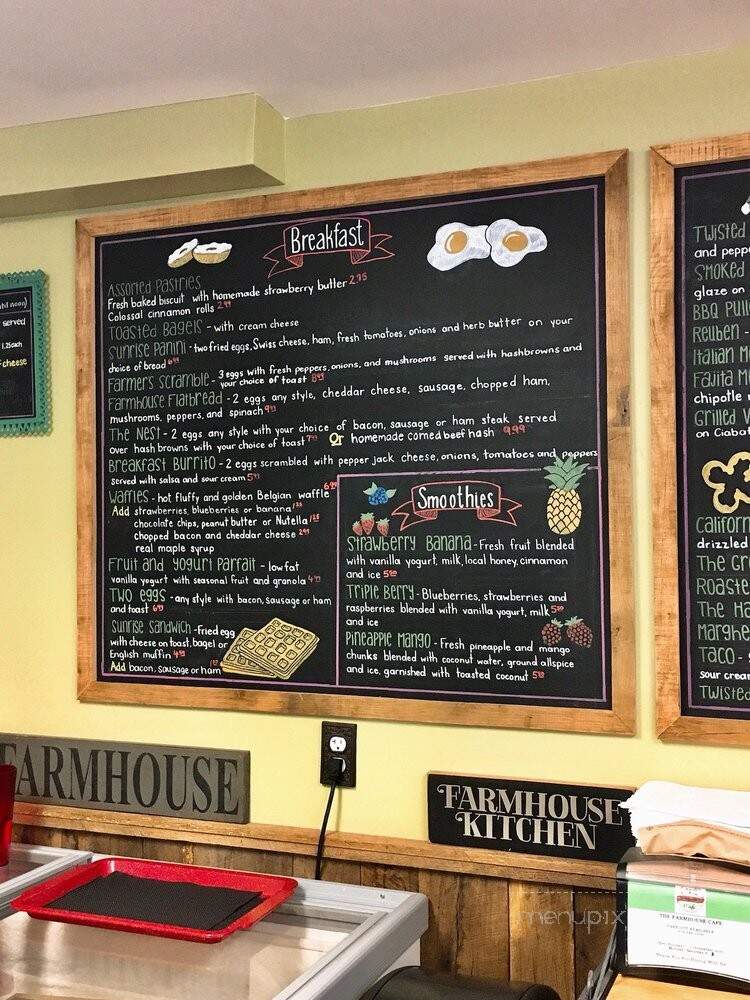 Breakfast
Assorted Pastries
Fresh baked biscuit with homemade strawberry butter 2.75
Colossal cinnamon rolls 2.99
Toasted Bagels - with cream cheese
Sunrise Panini - two fried eggs, Swiss cheese, ham, fresh tomatoes, onions and herb butter on your
choice of bread
Farmer's Scramble - 3 eggs with fresh peppers, onions, and mushrooms served with hashbrowns and
your choice of toast 8.99
Farmhouse Flatbread - 2 eggs any style, cheddar cheese, sausage, chopped ham,
mushrooms, peppers, and spinach
The Nest - 2 eggs any style with your choice of bacon, sausage or ham steak served
over hash browns with your choice of toast Or homemade corned beef hash 9.99
Breakfast Burrito - 2 eggs scrambled with pepper jack cheese, onions, tomatoes and peppers
served with salsa and sour cream
Waffles - hot fluffy and golden Belgian waffle
Add strawberries, blueberries or banana
chocolate chips, peanut butter or Nutella
chopped bacon and cheddar cheese
real maple syrup
Fruit and Yogurt Parfait - low fat
vanilla yogurt with seasonal fruit and granola
Two Eggs - any style with bacon, sausage or ham
and toast
Sunrise Sandwich - Fried egg
with cheese on toast, bagel or
English muffin
Add bacon, sausage or ham
Smoothies
Strawberry Banana - Fresh fruit blended
with vanilla yogurt, milk, local honey, cinnamon
and ice
Triple Berry - Blueberries, strawberries and
raspberries blended with vanilla yogurt, milk
and ice
Pineapple Mango - Fresh pineapple and mango
chunks blended with coconut water, ground allspice
and ice, garnished with toasted coconut
noon)
served
1.25 each
cheese
Twisted
and pepp
Smoked
glaze on
BBQ Pull
Reuben -
Italian M
Fajita M
chipotle
Grilled V
on Ciabat
Californ
drizzled
The Gr
Roaste
The Ha
Marghe
Taco -
sour crean
Twisted
FARMHOUSE
FARMHOUSE
KITCHEN
THE FARMHOUSE CAFE
menupix